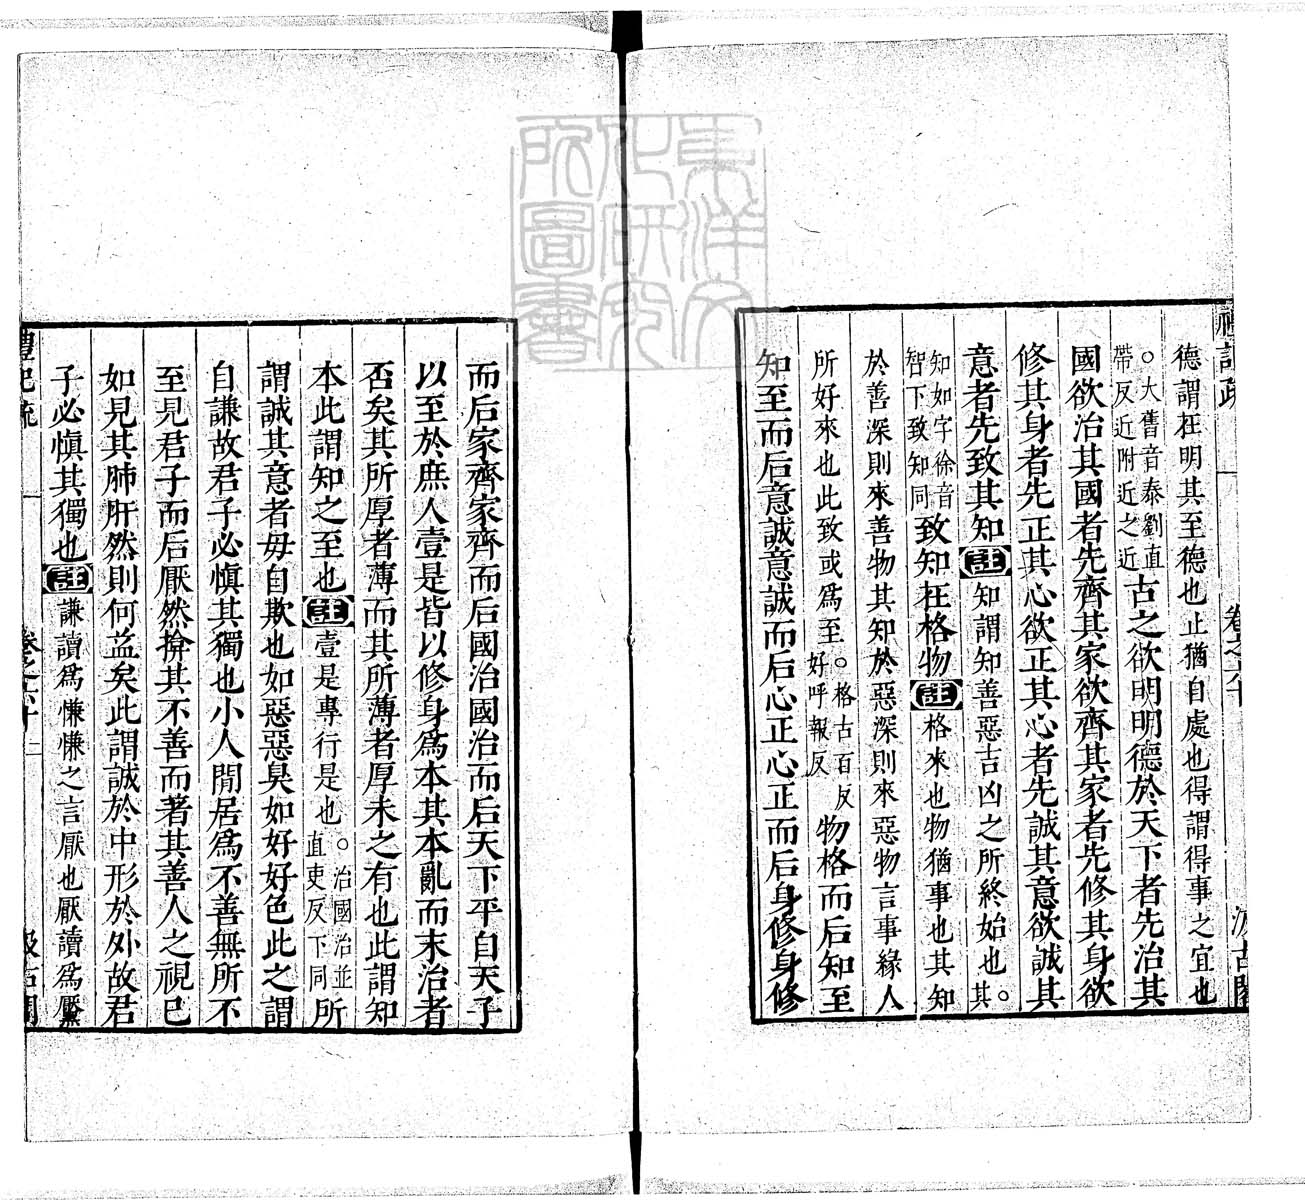 禮記疏 卷之六十 汲古閣
德謂在明其至德也止猶自處也得謂得事之宜也
○大舊音泰劉直帶反近附近之近古之欲明明德於天下者先治其
國欲治其國者先齊其家欲齊其家者先修其身欲
修其身者先正其心欲正其心者先誠其意欲誠其
意者先致其知註知謂知善惡吉凶之所終始也○其
知如字徐音智下致知同致知在格物註格來也物猶事也其知
於善深則來善物其知於惡深則來惡物言事緣人
所好來也此致或爲至○格古百反好呼報反物格而后知至
知至而后意誠意誠而后心正心正而后身修身修
而后家齊家齊而后國治國治而后天下平自天子
以至於庶人壹是皆以修身爲本其本亂而末治者
否矣其所厚者薄而其所薄者厚未之有也此謂知
本此謂知之至也註壹是專行是也○治國治並直吏反下同所
謂誠其意者毋自欺也如惡惡臭如好好色此之謂
自謙故君子必愼其獨也小人閒居爲不善無所不
至見君子而后厭然揜其不善而著其善人之視已
如見其肺肝然則何益矣此謂誠於中形於外故君
子必愼其獨也註謙讀爲慊慊之言厭也厭讀爲黶
禮記疏 卷之六十 二 汲古閣
東洋文化研究所圖書